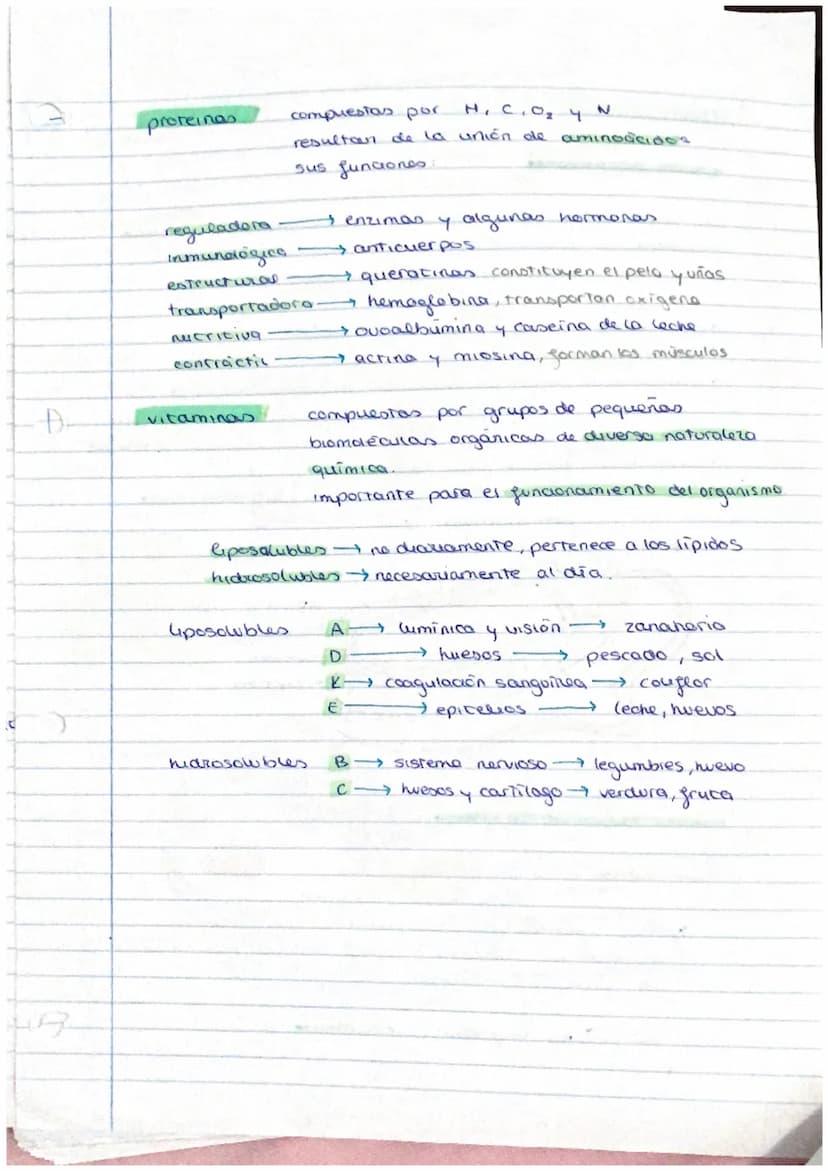 proteínas compuestas por H, C, O₂ y N
resultan de la unión de aminoácidos
sus funciones:
reguladora → enzimas y algunas hormonas
inmunológica → anticuerpos
estructural → queratinas constituyen el pelo y uñas
transportadora → hemoglobina, transportan oxígeno
nutritiva → ovoalbúmina y caseína de la leche
contráctil → actina y miosina, forman los músculos
vitaminas compuestas por grupos de pequeñas
biomoléculas orgánicas de diversa naturaleza
química.
importante para el funcionamiento del organismo
liposolubles → no diariamente, pertenece a los lípidos
hidrosolubles → necesariamente al día.
liposolubles A → lumínica y visión → zanahoria
D → huesos → pescado, sol
K → coagulación sanguínea → couflor
E → epitelios → leche, huevos
hidrosolubles B → sistema nervioso → legumbres, huevo
C → huesos y cartílago → verdura, fruta